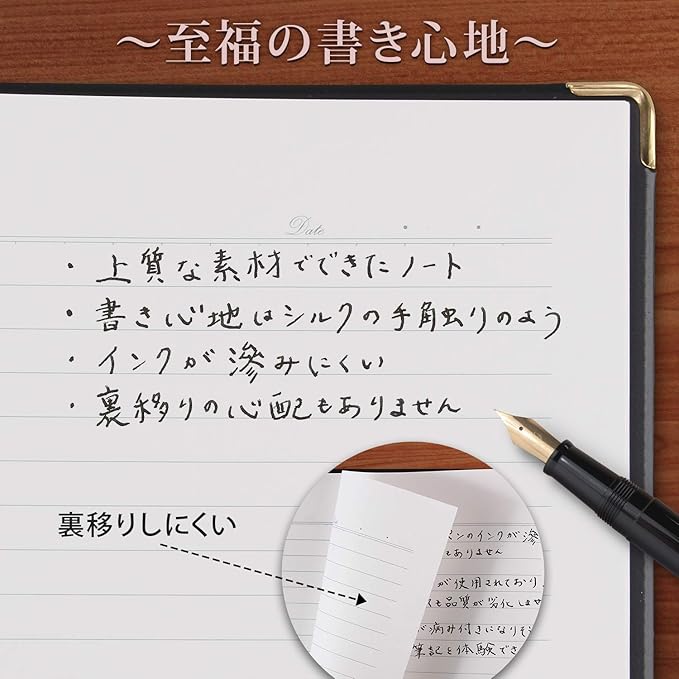 ～至福の書き心地～
Date
・上質な素材でできたノート
・書き心地はシルクの手触りのよう
・インクが滲みにくい
・裏移りの心配もありません
裏移りしにくい
ンのインクが滲
もありません
が使用されており
も品質が劣化しませ
が病み付きになりそ
筆記を体験でき